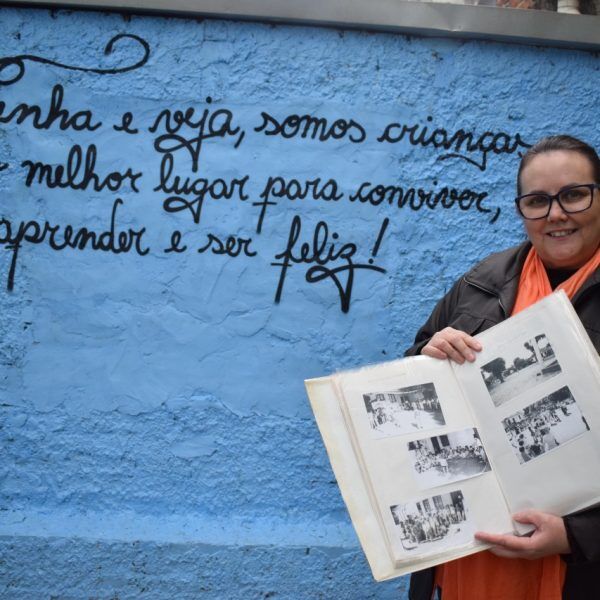 enha e veja, somos crianças
melhor lugar para conviver,
aprender e ser feliz!